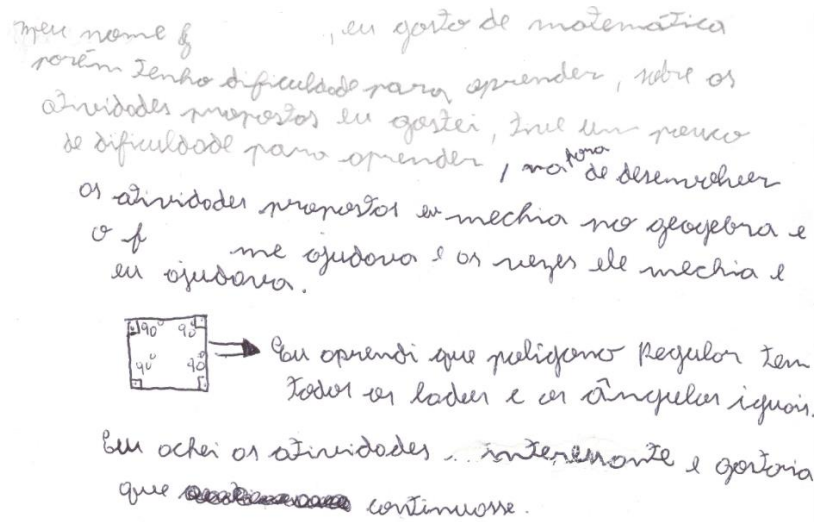 Meu nome é , eu gosto de matemática
porém tenho dificuldade para aprender, sobre as
atividades propostas eu gostei, tive um pouco
de dificuldade para aprender, na hora de desenvolver
as atividades propostas eu mechia no geogebra e
o f me ajudava e as vezes ele mechia e
eu ajudava.
90° 90°
90° 90°
Eu aprendi que poligono Regular tem
todos os lados e os ângulos iguais.
Eu achei as atividades interessante e gostaria
que continuasse.